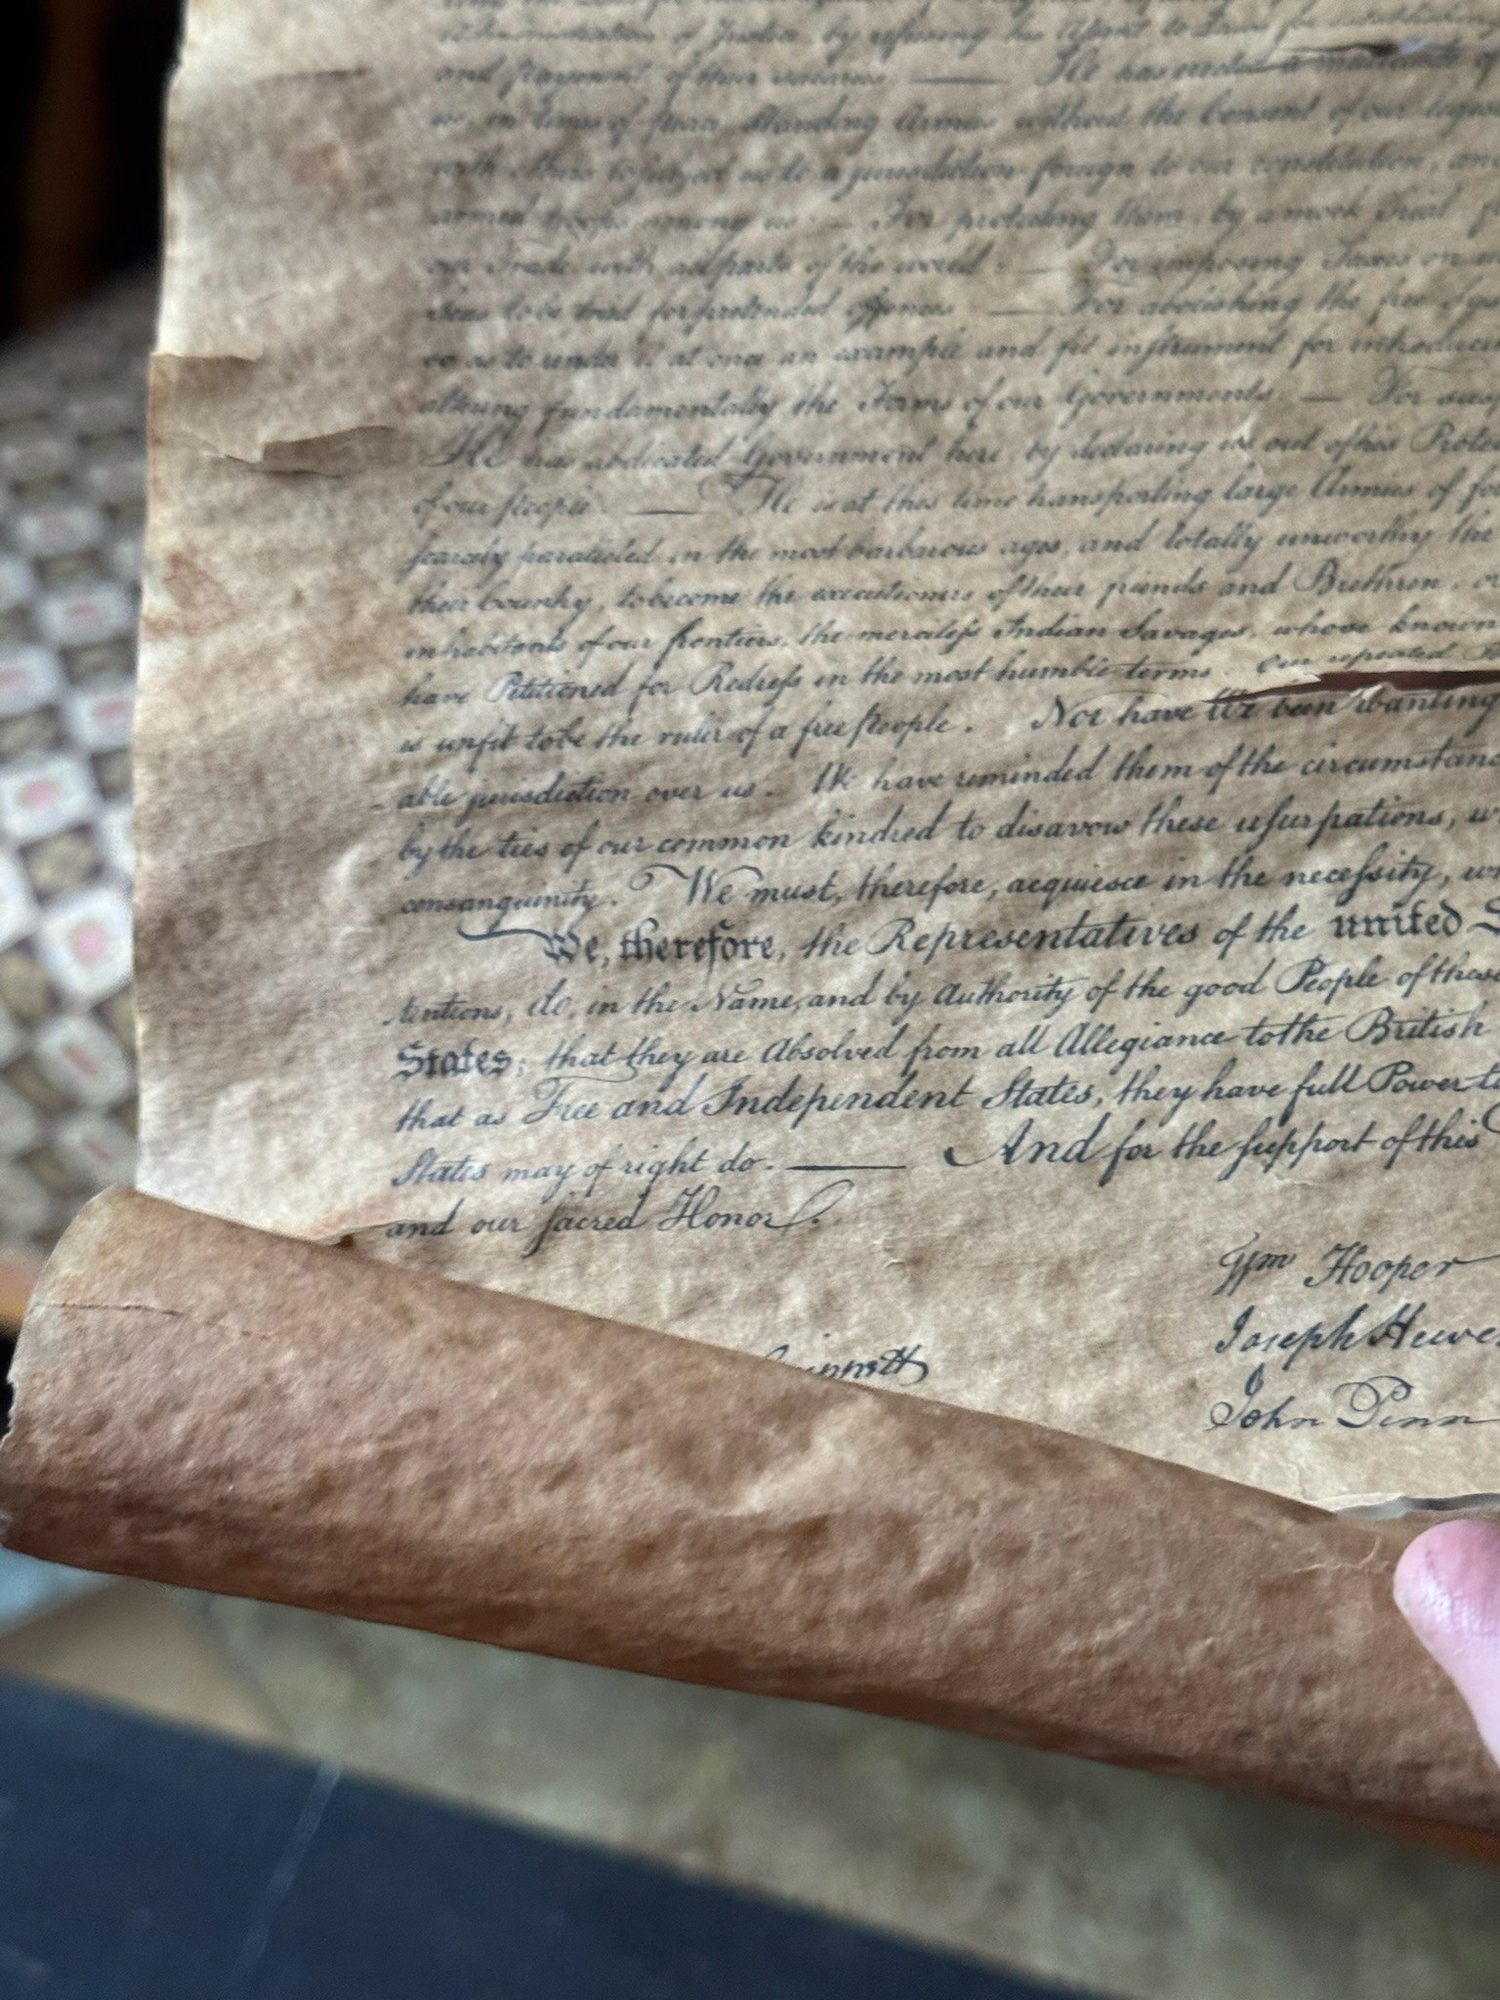 Administration of Justice, by refusing his Assent to Laws for establishing
and payment of their salaries. —— He has erected a multitude of
us, in times of peace, Standing Armies without the Consent of our legis
with others to subject us to a jurisdiction foreign to our constitution, and
armed troops among us: — For protecting them, by a mock Trial, f
our Trade with all parts of the world: — For imposing Taxes on u
Seas to be tried for pretended offences —— For abolishing the free Sys
so as to render it at once an example and fit instrument for introducin
altering fundamentally the Forms of our Governments: — For susp
He has abdicated Government here, by declaring us out of his Protec
of our people. —— He is at this time transporting large Armies of fo
scarcely paralleled in the most barbarous ages, and totally unworthy the
their Country, to become the executioners of their friends and Brethren, or
inhabitants of our frontiers, the merciless Indian Savages, whose known
have Petitioned for Redress in the most humble terms: Our repeated
is unfit to be the ruler of a free People. Nor have We been wanting
able jurisdiction over us. We have reminded them of the circumstanc
by the ties of our common kindred to disavow these usurpations, w
consanguinity. We must, therefore, acquiesce in the necessity, w
We, therefore, the Representatives of the united S
tentions, do, in the Name, and by Authority of the good People of these
States; that they are Absolved from all Allegiance to the British
that as Free and Independent States, they have full Power to
States may of right do. —— And for the support of this
and our sacred Honor.
Wm Hooper
Joseph Hewes
John Penn